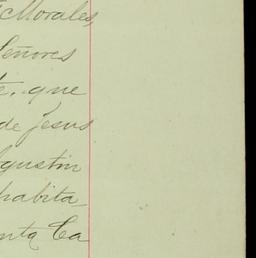 Morales,
Señores
que
de Jesus
gustin
habita-
nta Ca